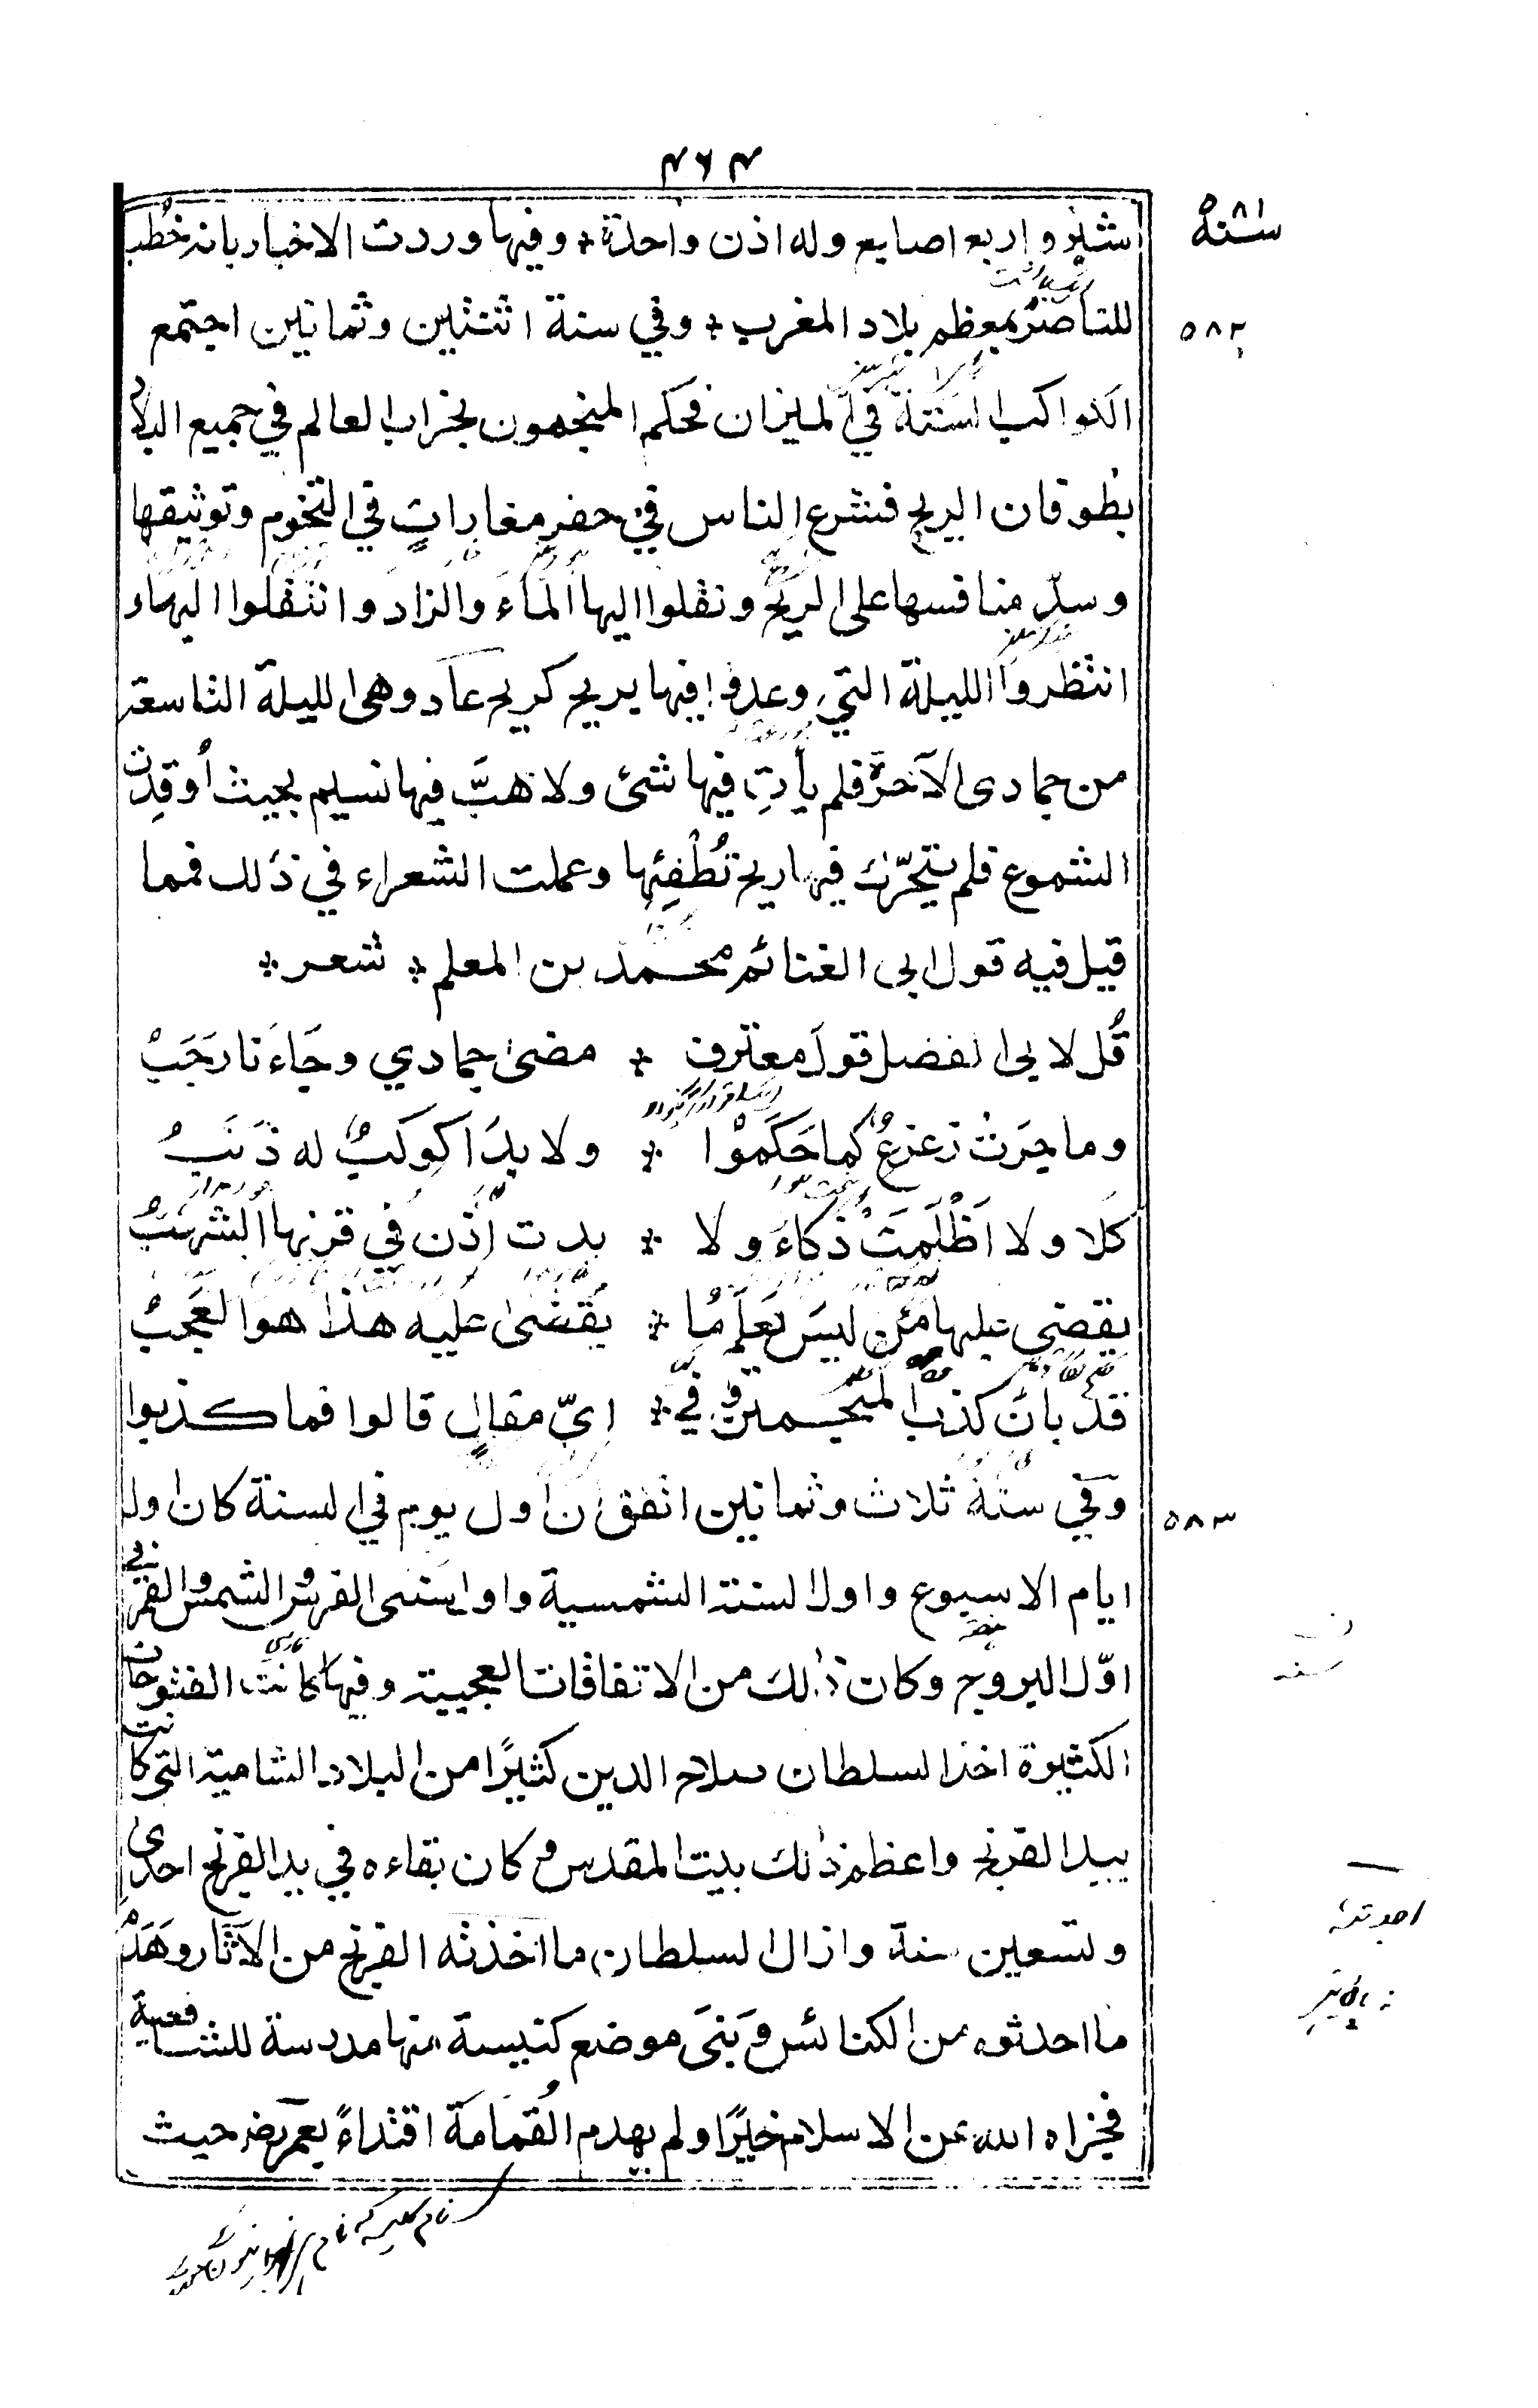 ٤٦٤
شبر و اربع اصابع وله اذن واحدة * وفيها وردت الاخبار بانه خُطب
للناصر بمعظم بلاد المغرب * وفي سنة اثنتين وثمانين اجتمع
٥٨٢
الكواكب الستة في الميزان فحكم المنجمون بخراب العالم في جميع البلاد
بطوفان الريح فشرع الناس في حفر مغاراتٍ في التخوم وتوثيقها
وسدّ منافسها على الريح ونقلوا اليها الماء والزاد وانتقلوا اليها و
انتظروا الليلة التي وعدوا فيها بريح كريح عاد وهى الليلة التاسعة
من جمادى الآخرة فلم يأتِ فيها شئ ولا هبَّ فيها نسيم بحيث أوقدت
الشموع فلم يتحرّك فيها ريح تُطْفِئها وعملت الشعراء في ذٰلك فمما
قيل فيه قول ابى الغنائم محمد بن المعلم * شعر *
قُل لابى الفضل قولَ معترف * مضىٰ جمادي وجَاءَنا رَجَبْ
وما جَرَتْ زعزعٌ كما حَكَمَوْا * ولا بدَا كوكبٌ له ذَنَبُ
كلا ولا اَظْلَمَتْ ذُكاءَ ولا * بدت اذن في قرنها الشهبُ
يقضي عليها من ليس يَعلَم مَا * يُقضىٰ عليه هذا هو العَجَبُ
قد بان كذب المنجمين وفي * ايّ مقالٍ قالوا فما كذبوا
وفي سنة ثلاث وثمانين اتفق ان اول يوم في السنة كان اول
٥٨٣
ايام الاسبوع واول السنة الشمسية واول سنى الفرس والشمس والقمر في
اوّل البروج وكان ذٰلك من الاتفاقات العجيبة وفيها كانت الفتوحات
الكثيرة اخذ السلطان صلاح الدين كثيرًا من البلاد الشامية التى كانت
بيد الفرنج واعظم ذٰلك بيت المقدس وكان بقاءه في يد الفرنج احدى
وتسعين سنة وازال السلطان ما اخذته الفرنج من الآثار وهَدَمْ
ما احدثوه من الكنائس وَبَنىَ موضع كنيسة منها مدرسة للشافعية
فجزاه الله عن الاسلام خيرًا ولم يهدم القُمَامَة اقتداءً بعمر رض حيث